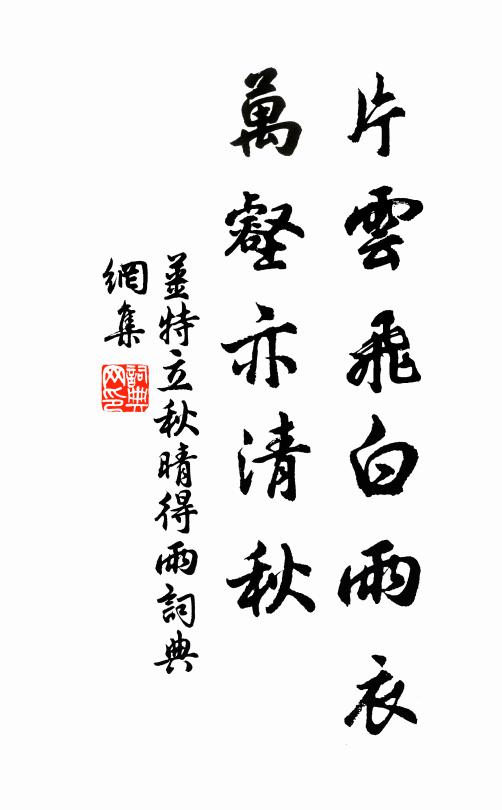 片雲飛白雨衣
萬壑亦清秋
薑特立秋晴得雨詞典
網集
詞典
网印